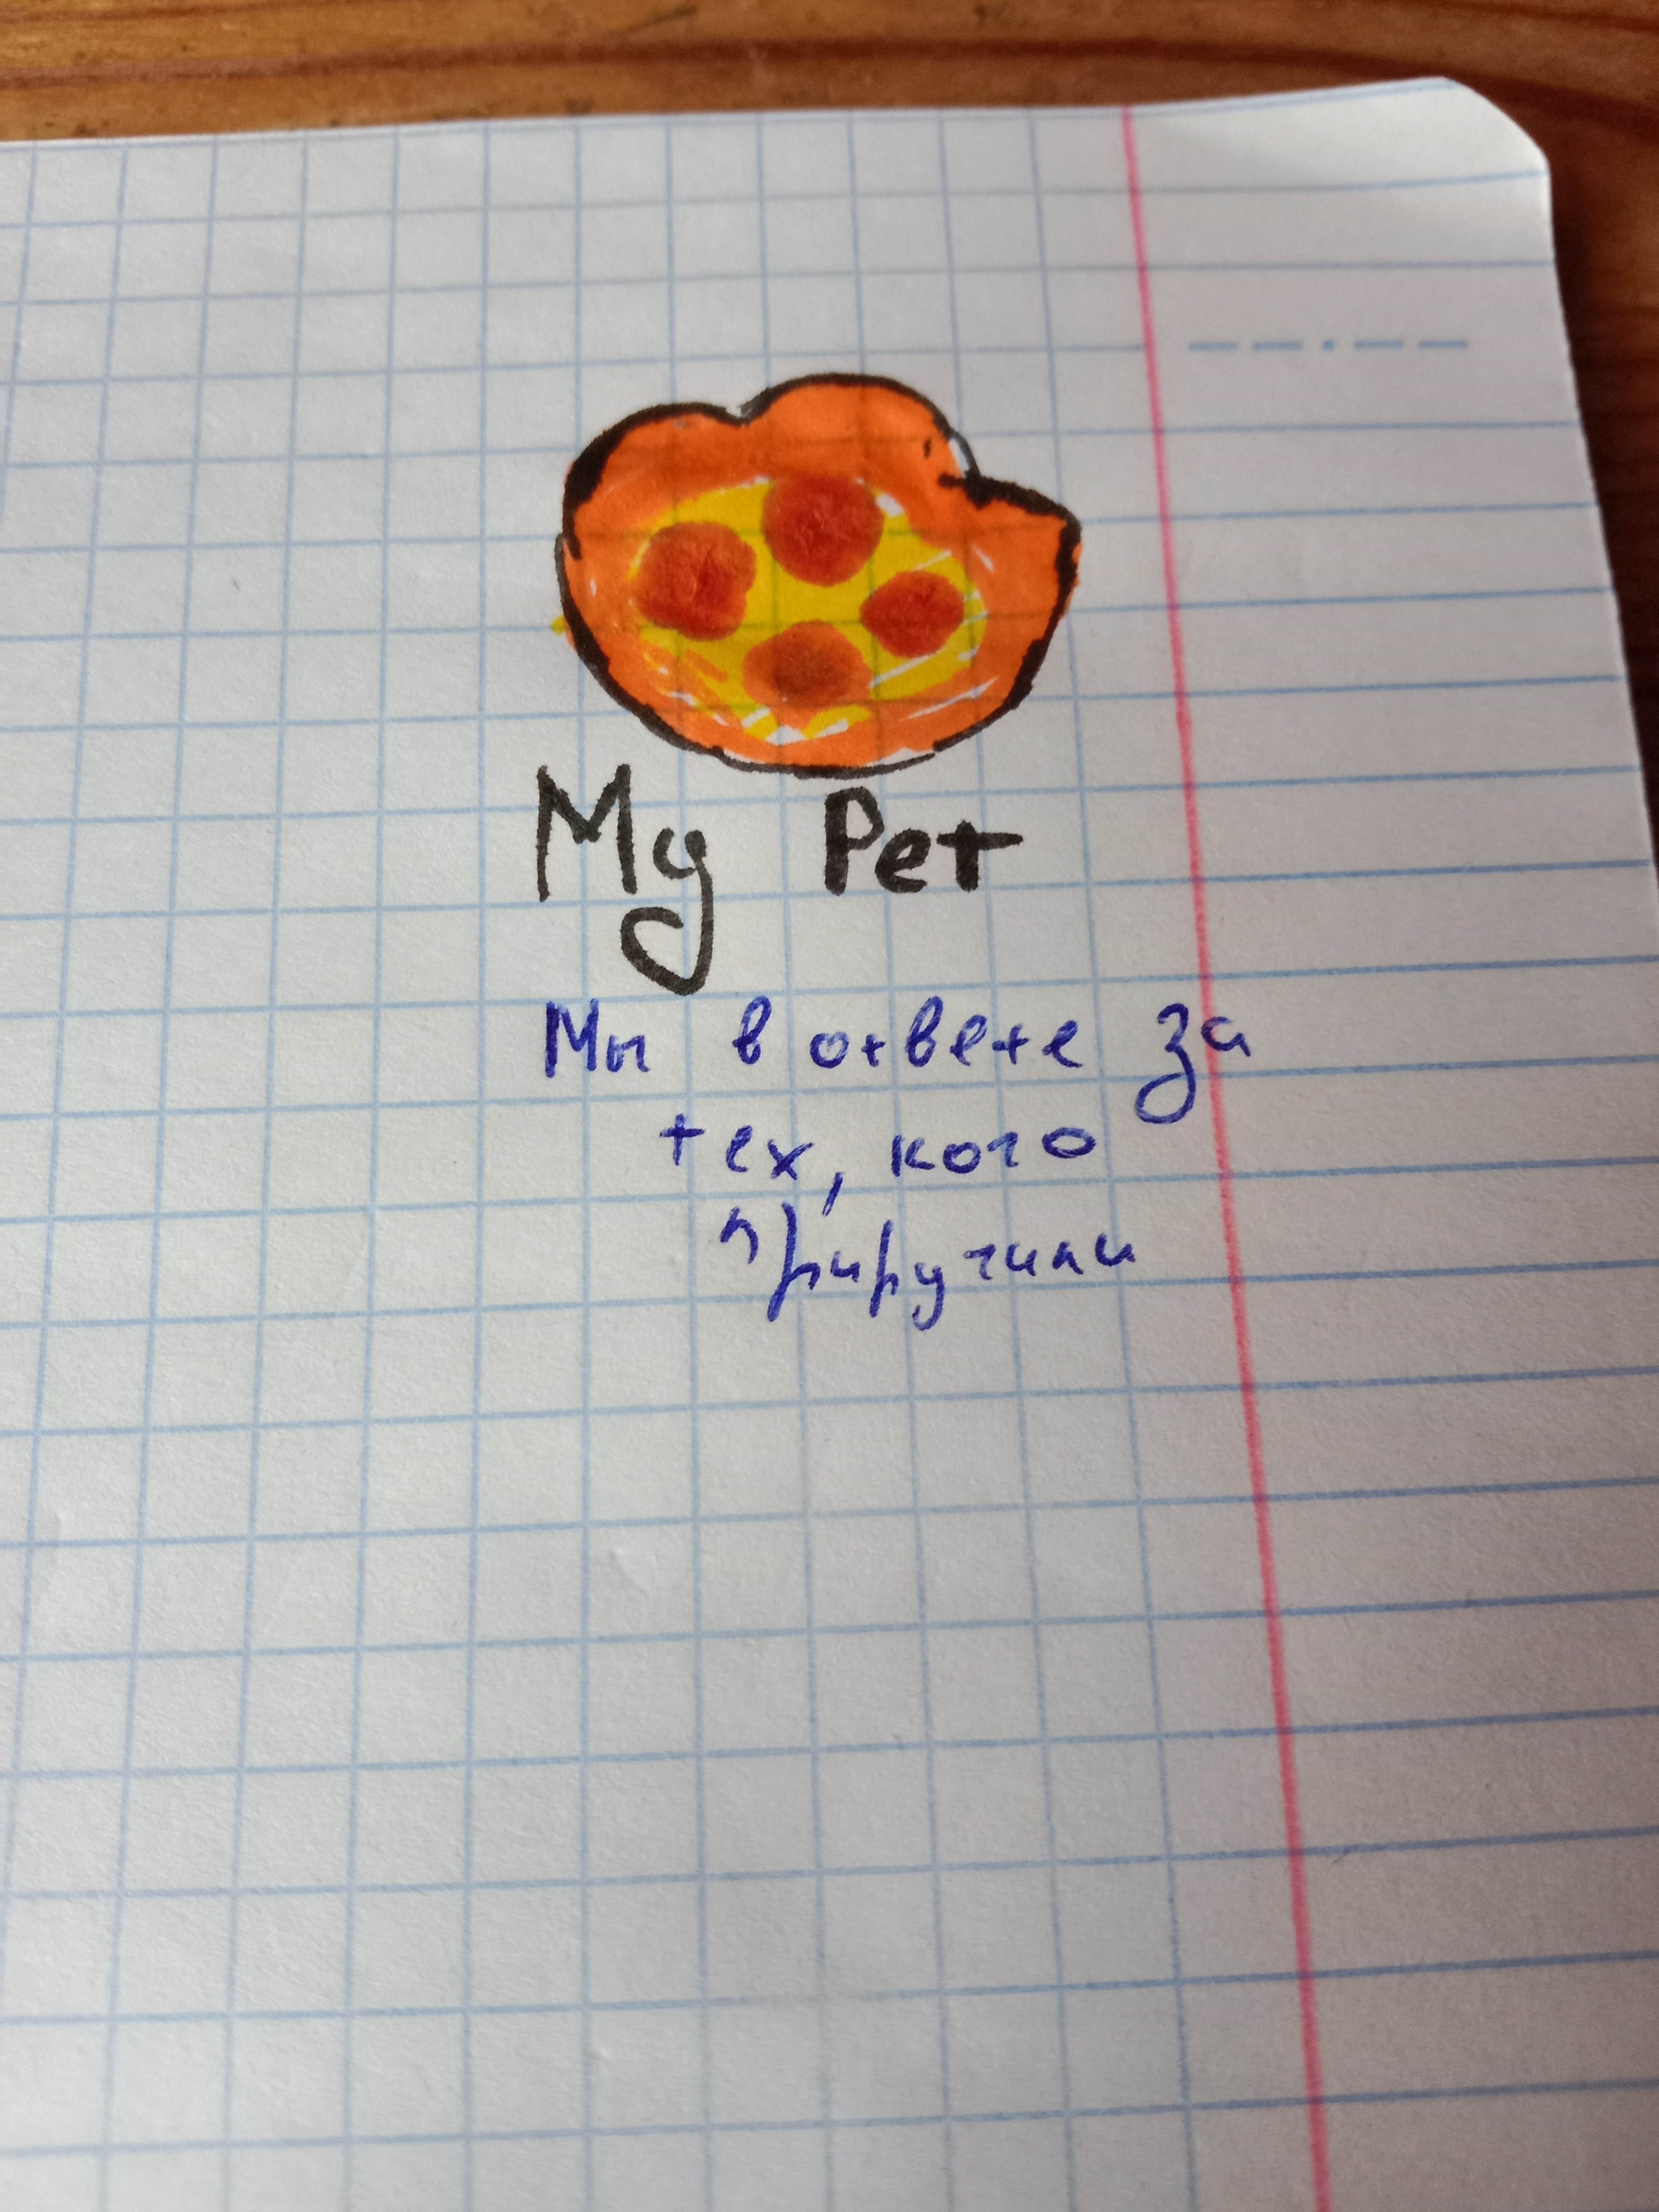 My Pet
Мы в ответе за
тех, кого
приручили